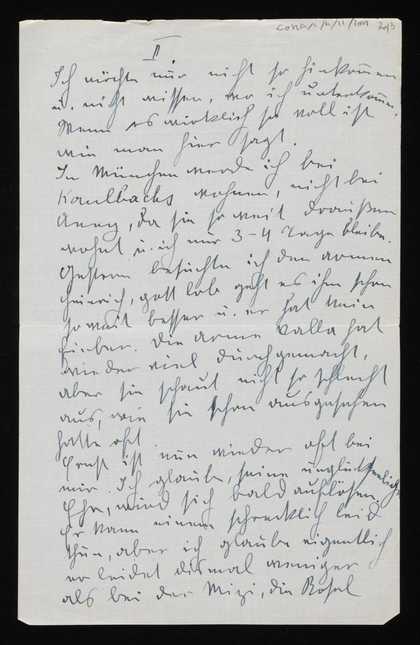 II.
Ich möchte nur nicht so hinkommen
u. nicht wissen, wo ich unterkomme.
Wenn es wirklich so voll ist
wie man hier sagt.
In München werde ich bei
Kaulbachs wohnen, nicht bei
Anny, da sie so weit draußen
wohnt u. ich nur 3-4 Tage bleibe.
Gestern besuchte ich den armen
Heinrich, gott lob geht es ihm schon
so weit besser u. er hat kein
Fieber. Die arme Valla hat
wieder viel durchgemacht,
aber sie schaut nicht so schlecht
aus, wie sie schon ausgesehen
hatte oft.
Ernst ist nun wieder oft bei
mir. Ich glaube, seine unglückselige
Ehe, wird sich bald auflösen,
Er kann einem schrecklich leid
thun, aber ich glaube eigentlich
er leidet diesmal weniger
als bei der Mizi, die Rosel